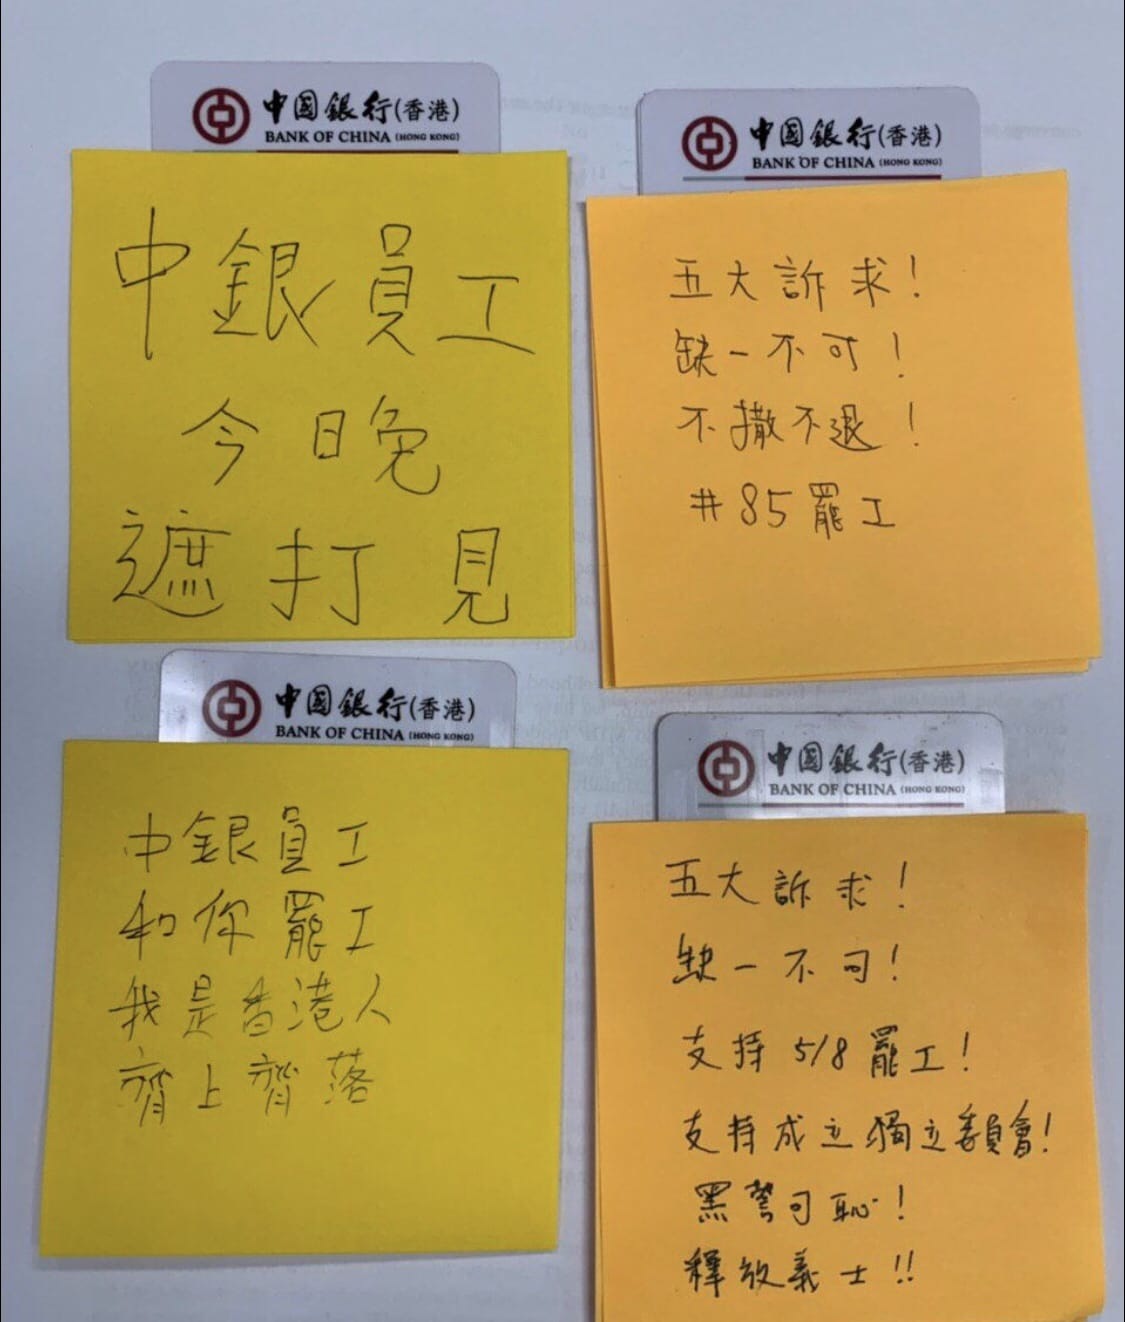 中國銀行(香港)
BANK OF CHINA (HONG KONG)
中銀員工
今日晚
遮打見
中國銀行(香港)
BANK OF CHINA (HONG KONG)
五大訴求!
缺一不可!
不撒不退!
#85罷工
中國銀行(香港)
BANK OF CHINA (HONG KONG)
中銀員工
和你罷工
我是香港人
齊上齊落
中國銀行(香港)
BANK OF CHINA (HONG KONG)
五大訴求!
缺一不可!
支持5/8罷工!
支持成立獨立委員會!
黑警可恥!
釋放義士!!